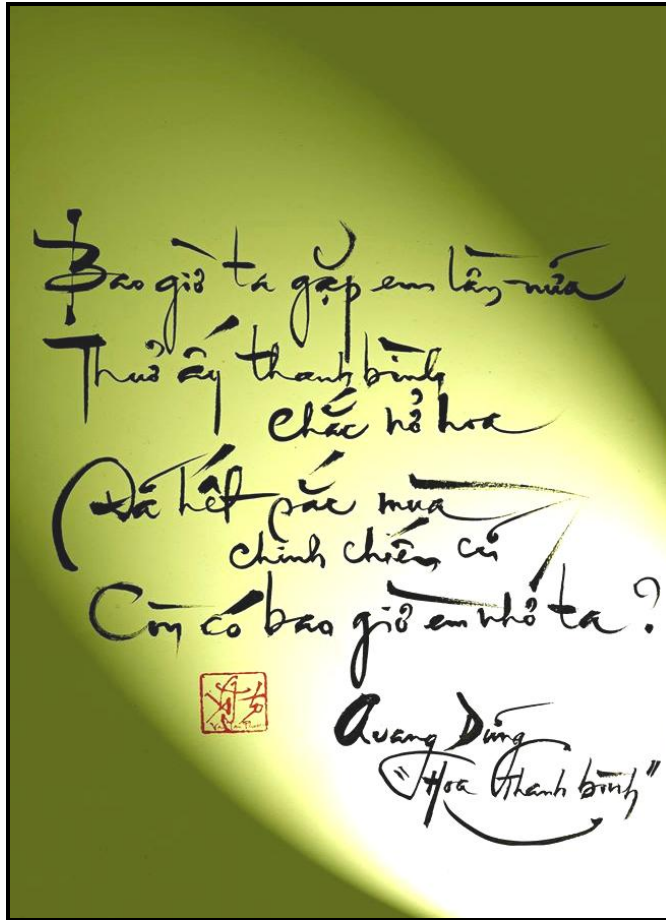 Bao giờ ta gặp em lần nữa
Thuở ấy thanh bình
chắc nở hoa
Đã hết sắc mùa
chinh chiến cũ
Còn có bao giờ em nhớ ta?
Quang Dũng
"Hoa thanh bình"